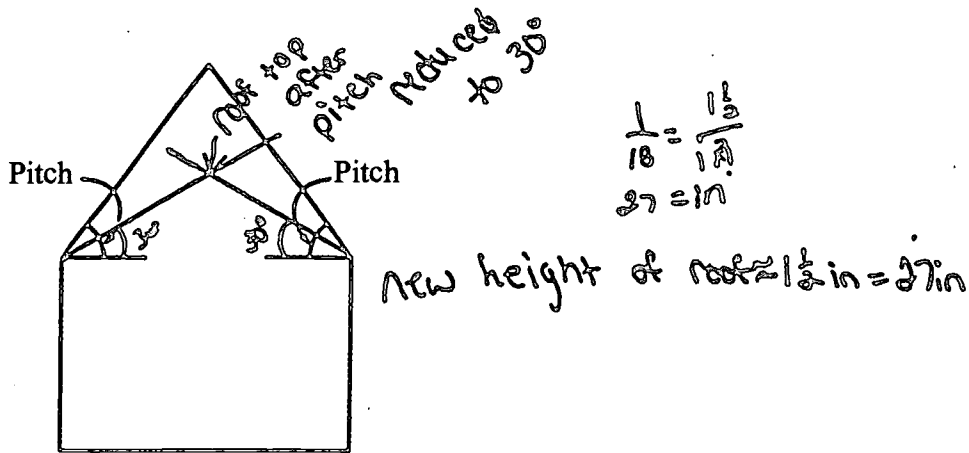 roof top
after
pitch reduced
to 30°
Pitch
Pitch
30°
1/18 = 1 1/2
27 = in
new height of roof ≈ 1 1/2 in = 27in